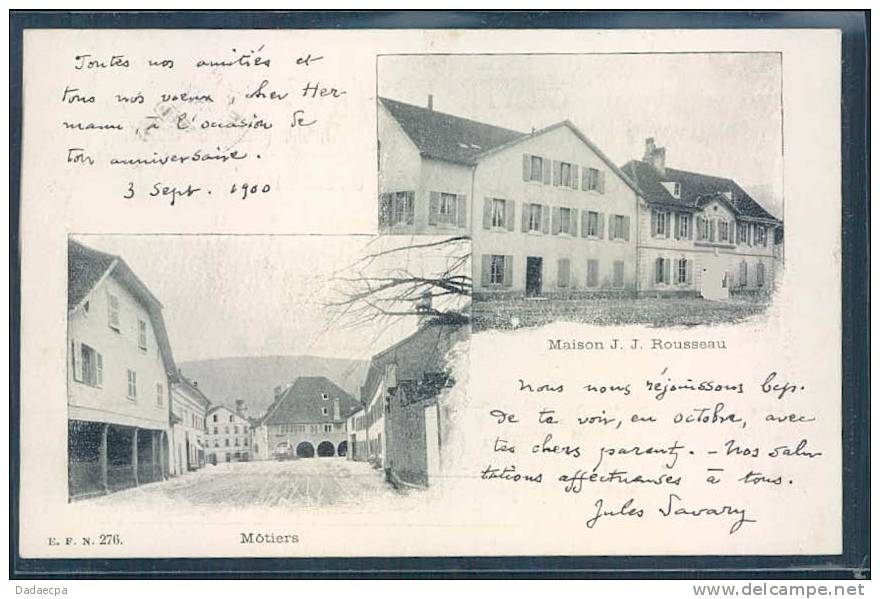 Toutes nos amitiés et
tous nos voeux, cher Her-
mann, à l'occasion de
ton anniversaire.
3 Sept. 1900
Maison J. J. Rousseau
Nous nous réjouissons bcp.
de te voir, en octobre, avec
tes chers parents. - Nos salu
tations affectueuses à tous.
Jules Savary
E. F. N. 276.
Môtiers
Dadaecpa
http://www.delcampe.net